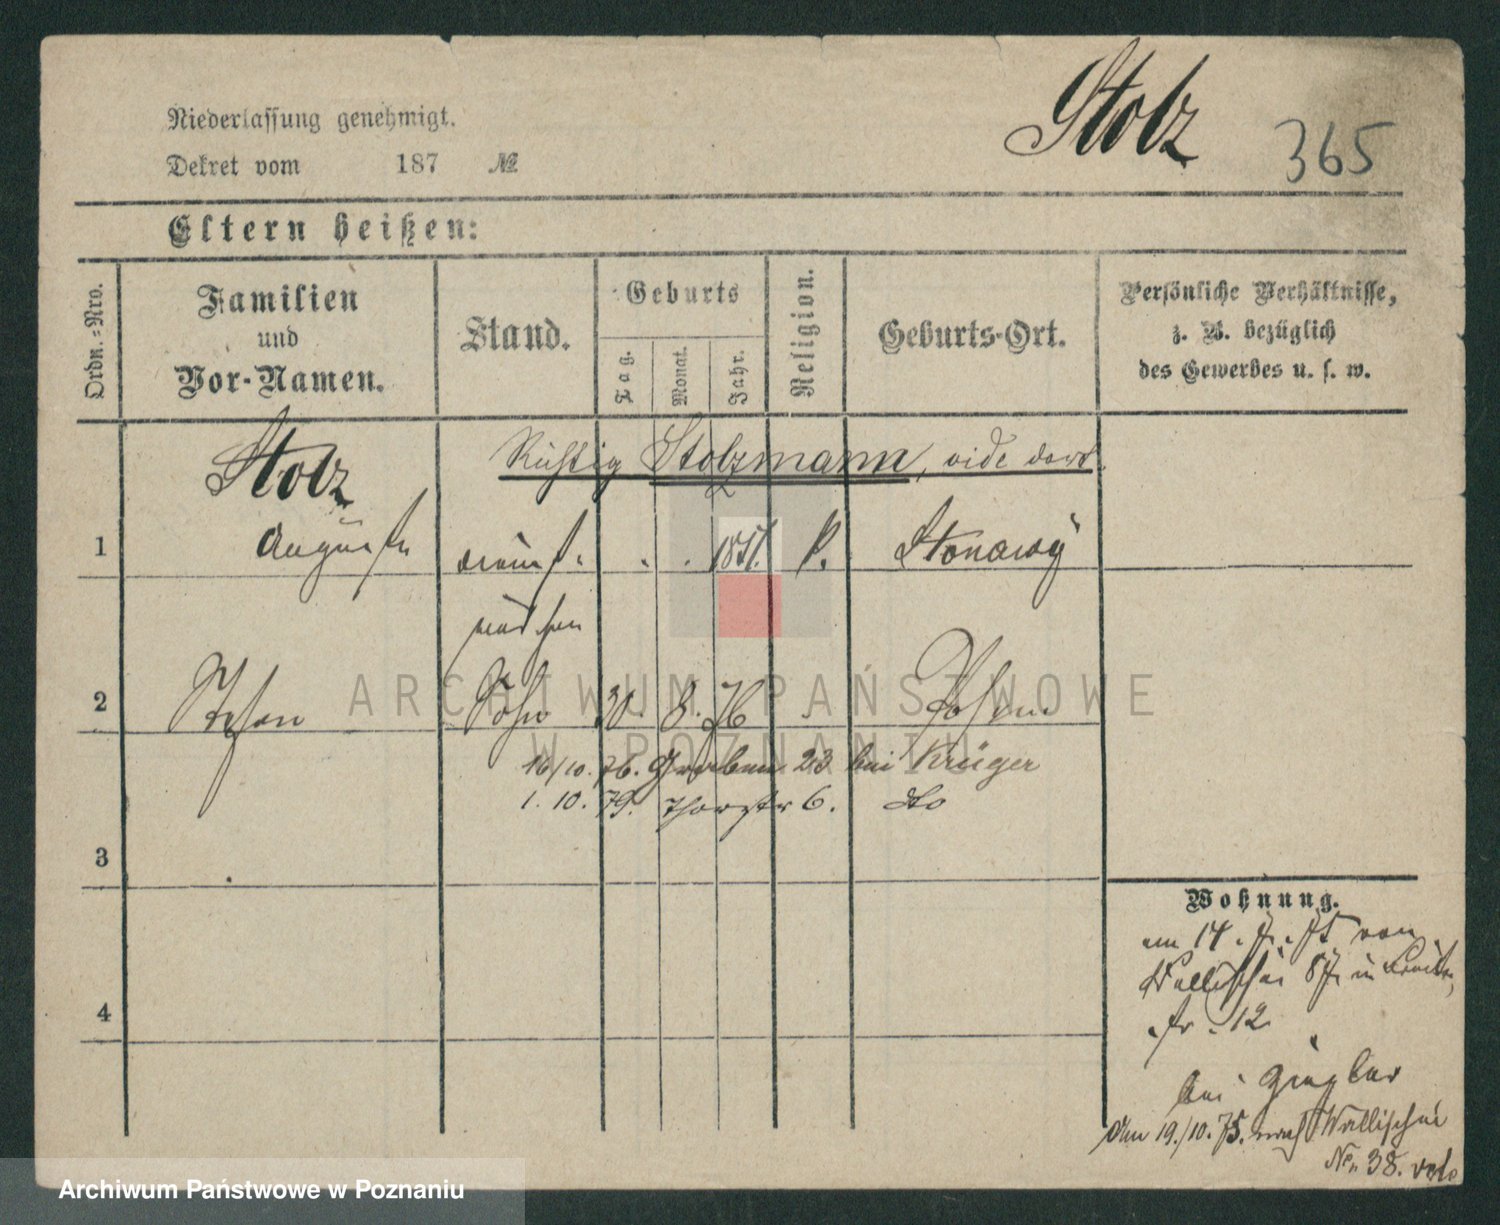 Stolz 365
Niederlassung genehmigt.
Dekret vom 187 №
Eltern heißen:
Ordn.=Nro.
Familien
und
Vor-Namen.
Stand.
Geburts
Tag.
Monat.
Jahr.
Religion.
Geburts-Ort.
Persönliche Verhältnisse,
z. B. bezüglich
des Gewerbes u. s. w.
Stolz
Richtig Stolzmann, vide dort.
1 Auguste 1851.
mädchen
2 Stefan Sohn 30. 8. 76 Posen
16/10. 76. Graben 23 bei Krüger
1. 10. 79. Thorstr 6. dto
3
4
Wohnung.
am 14. 7. 75 von
Wallischei 87 in Breite
str. 12
bei Ziegler
Den 19./10. 75. nach Wallischei
No. 38.
ARCHIWUM PAŃSTWOWE
W POZNANIU
Archiwum Państwowe w Poznaniu